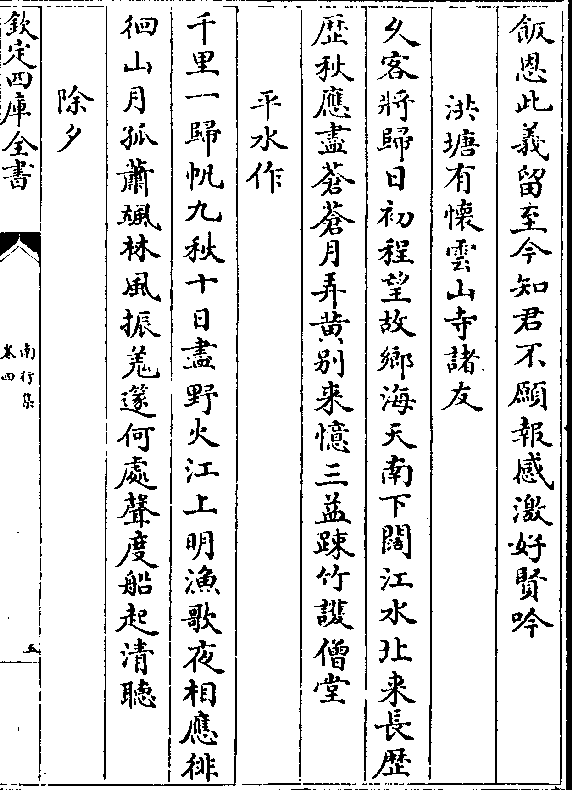 飯恩此義留至今知君不願報感激好賢吟
洪塘有懷雲山寺諸友
久客將歸日初程望故鄉海天南下闊江水北来長歷
歷秋應盡蒼蒼月弄黄别来憶三益踈竹護僧堂
平水作
千里一歸帆九秋十日盡野火江上明漁歌夜相應徘
徊山月孤蕭颯林風振羗篴何處聲度船起清聽
除夕
欽定四庫全書
南行集
卷四
五